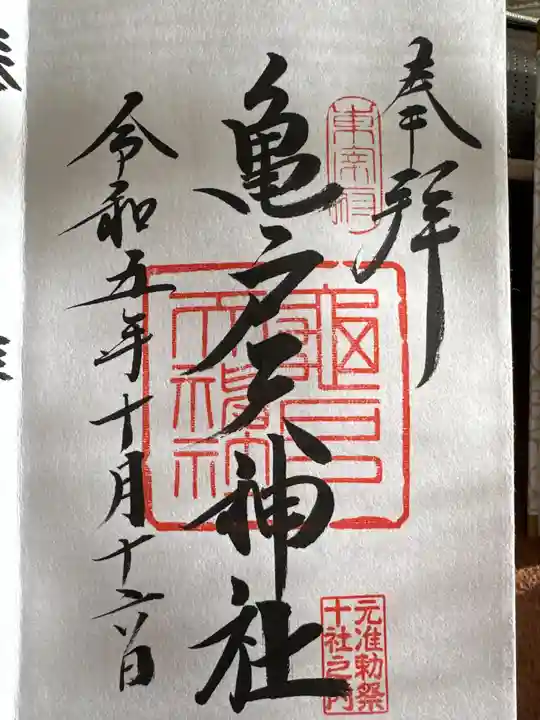 奉拝
亀戸天神社
令和五年十月十六日
元准勅祭
十社之内